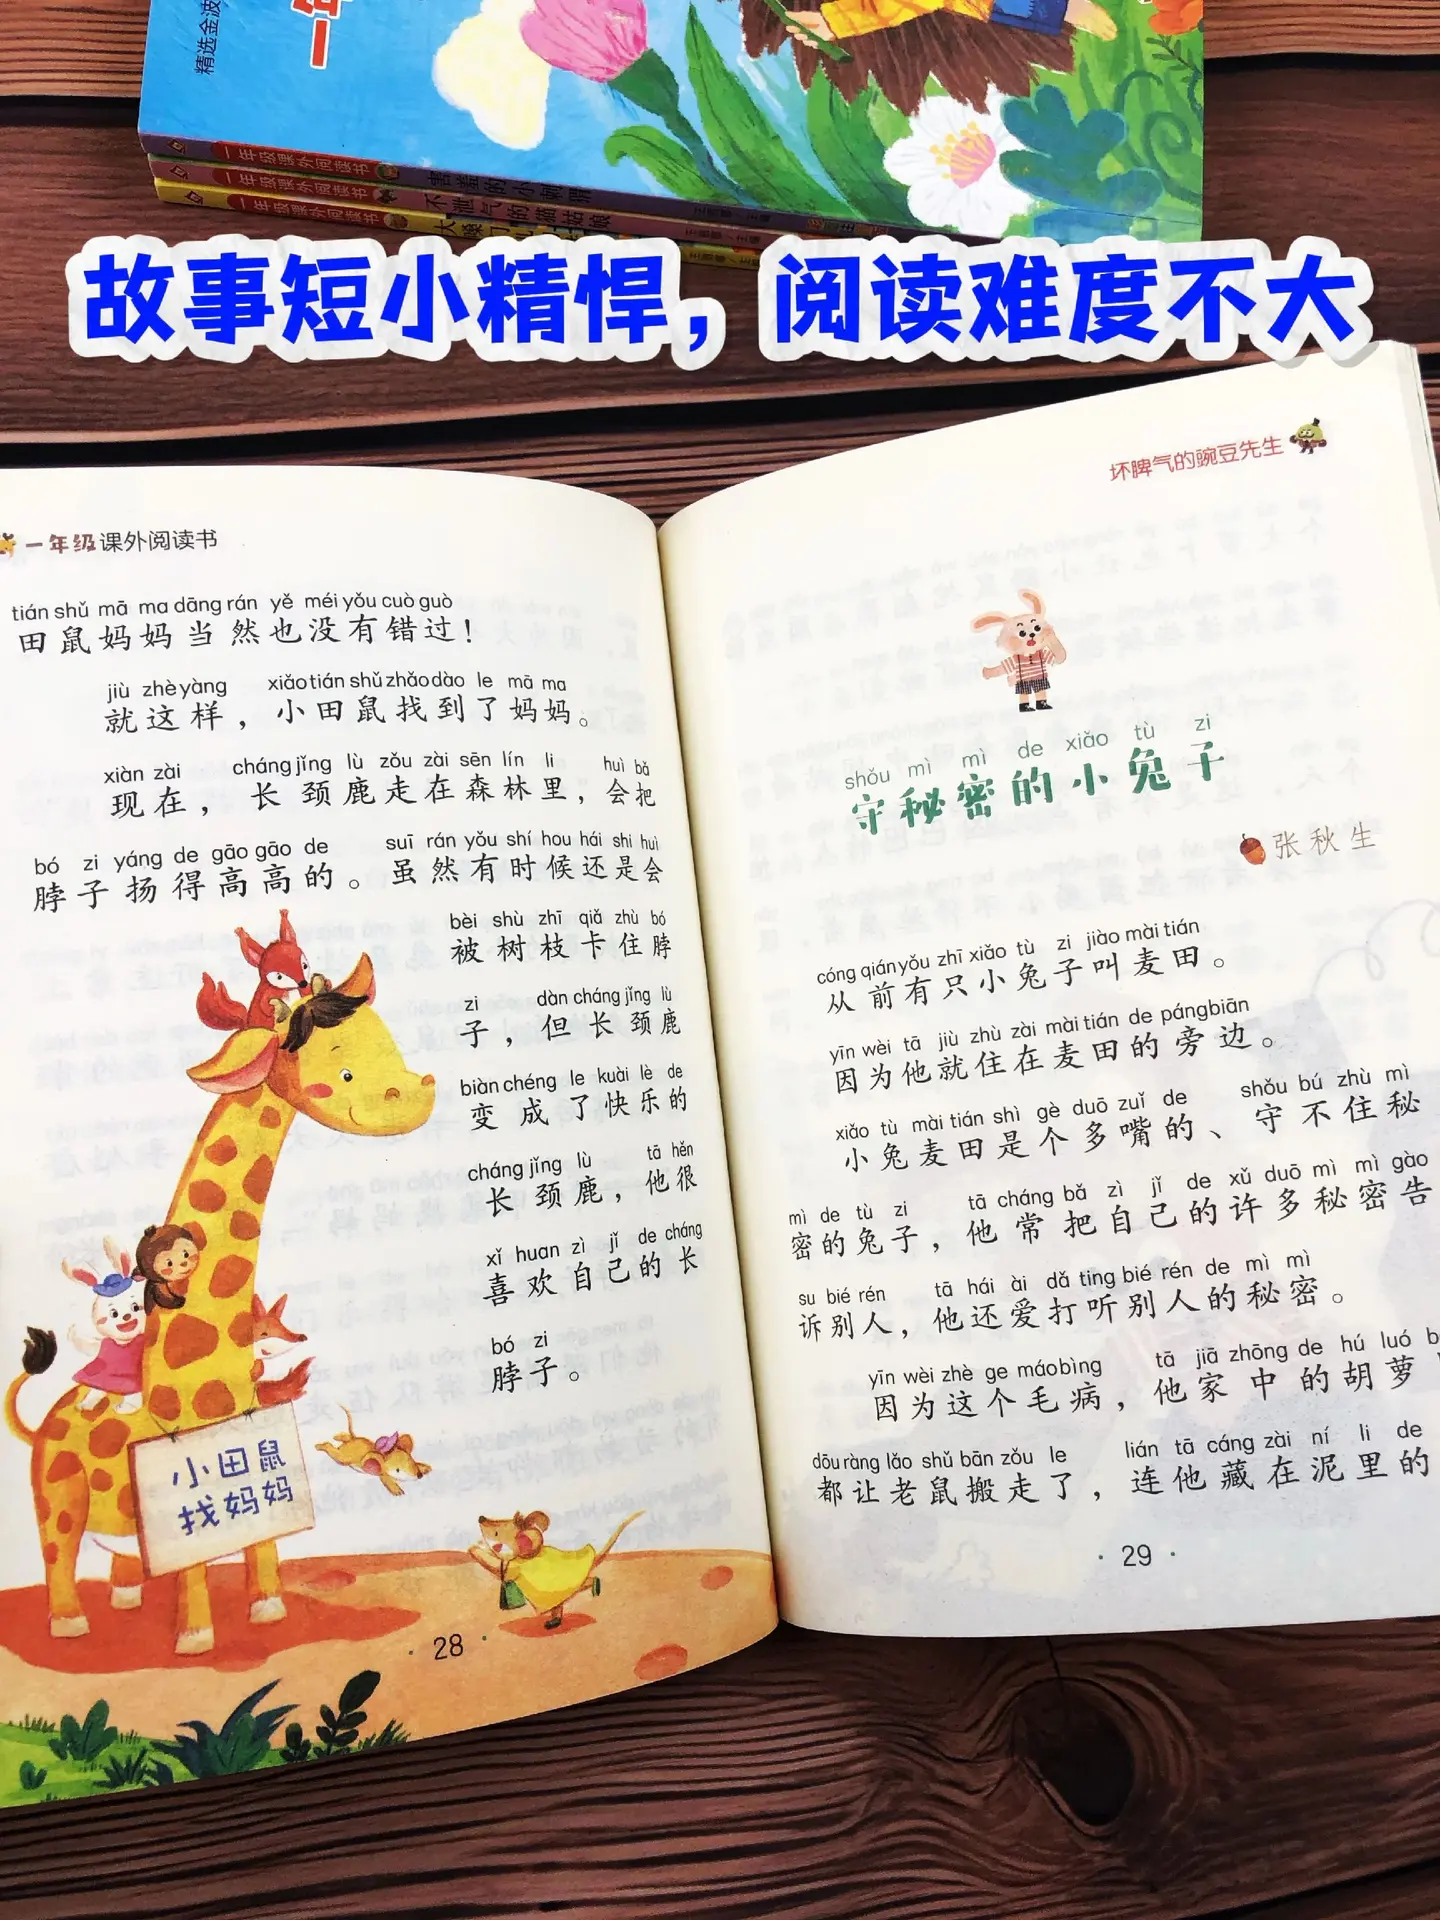 精选金波
一年级课外阅读书 害羞的小刺猬
一年级课外阅读书
一年级课外阅读书
故事短小精悍，阅读难度不大
一年级课外阅读书
tián shǔ mā ma dāng rán yě méi yǒu cuò guò
田鼠妈妈当然也没有错过！
jiù zhè yàng xiǎo tián shǔ zhǎo dào le mā ma
就这样，小田鼠找到了妈妈。
xiàn zài cháng jǐng lù zǒu zài sēn lín li huì bǎ
现在，长颈鹿走在森林里，会把
bó zi yáng de gāo gāo de suī rán yǒu shí hou hái shi huì
脖子扬得高高的。虽然有时候还是会
bèi shù zhī qiǎ zhù bó
被树枝卡住脖
zi dàn cháng jǐng lù
子，但长颈鹿
biàn chéng le kuài lè de
变成了快乐的
cháng jǐng lù tā hěn
长颈鹿，他很
xǐ huan zì jǐ de cháng
喜欢自己的长
bó zi
脖子。
小田鼠
找妈妈
28
坏脾气的豌豆先生
shǒu mì mì de xiǎo tù zi
守秘密的小兔子
张秋生
cóng qián yǒu zhī xiǎo tù zi jiào mài tián
从前有只小兔子叫麦田。
yīn wèi tā jiù zhù zài mài tián de páng biān
因为他就住在麦田的旁边。
xiǎo tù mài tián shì gè duō zuǐ de shǒu bú zhù mì
小兔麦田是个多嘴的、守不住秘
mì de tù zi tā cháng bǎ zì jǐ de xǔ duō mì mì gào
密的兔子，他常把自己的许多秘密告
su bié rén tā hái ài dǎ ting bié rén de mì mì
诉别人，他还爱打听别人的秘密。
yīn wèi zhè ge máo bìng tā jiā zhōng de hú luó
因为这个毛病，他家中的胡萝
dōu ràng lǎo shǔ bān zǒu le lián tā cáng zài ní li de
都让老鼠搬走了，连他藏在泥里的
29